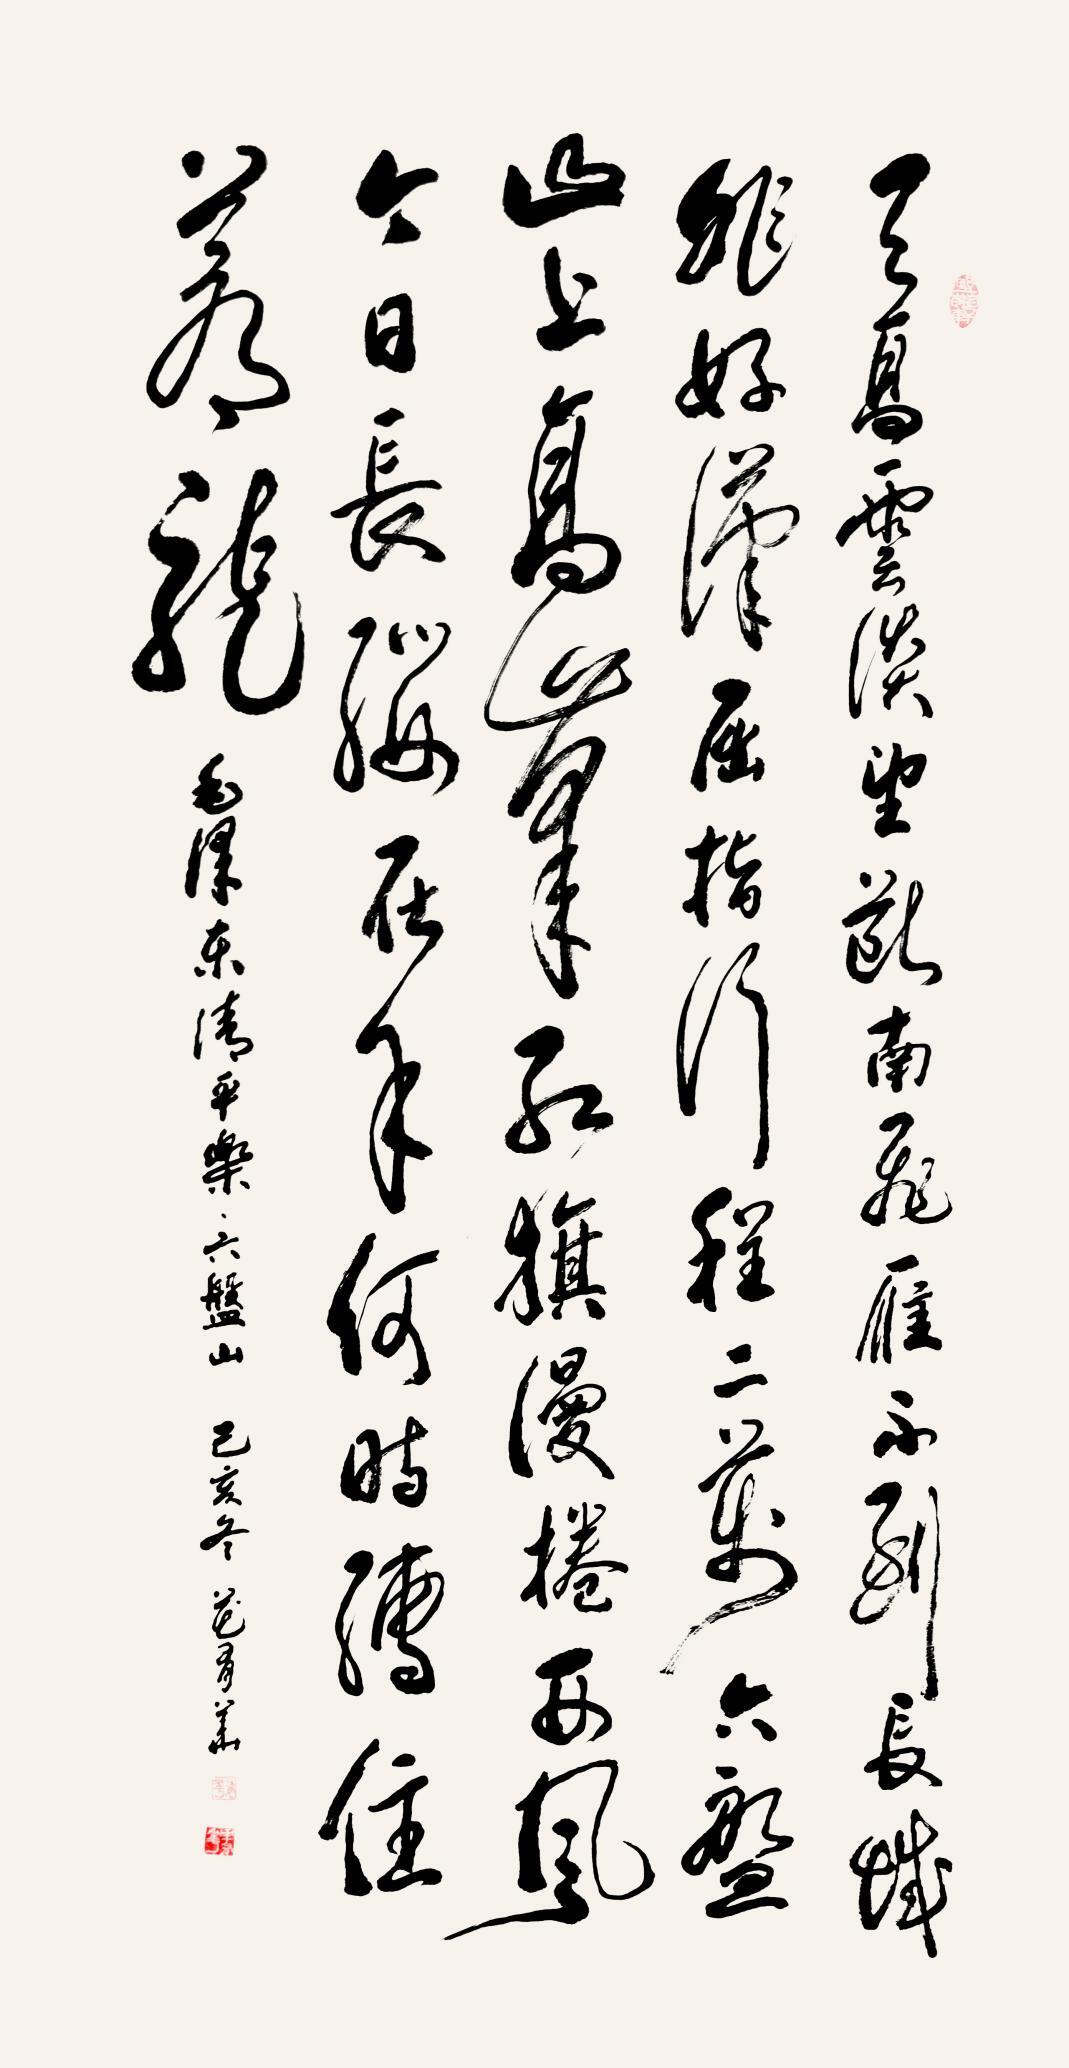 天高雲淡望斷南飛雁不到長城
非好漢屈指行程二萬六盤
山上高峯紅旗漫捲西風
今日長纓在手何時縛住
蒼龍
毛澤东清平樂、六盤山 己亥冬 范有華